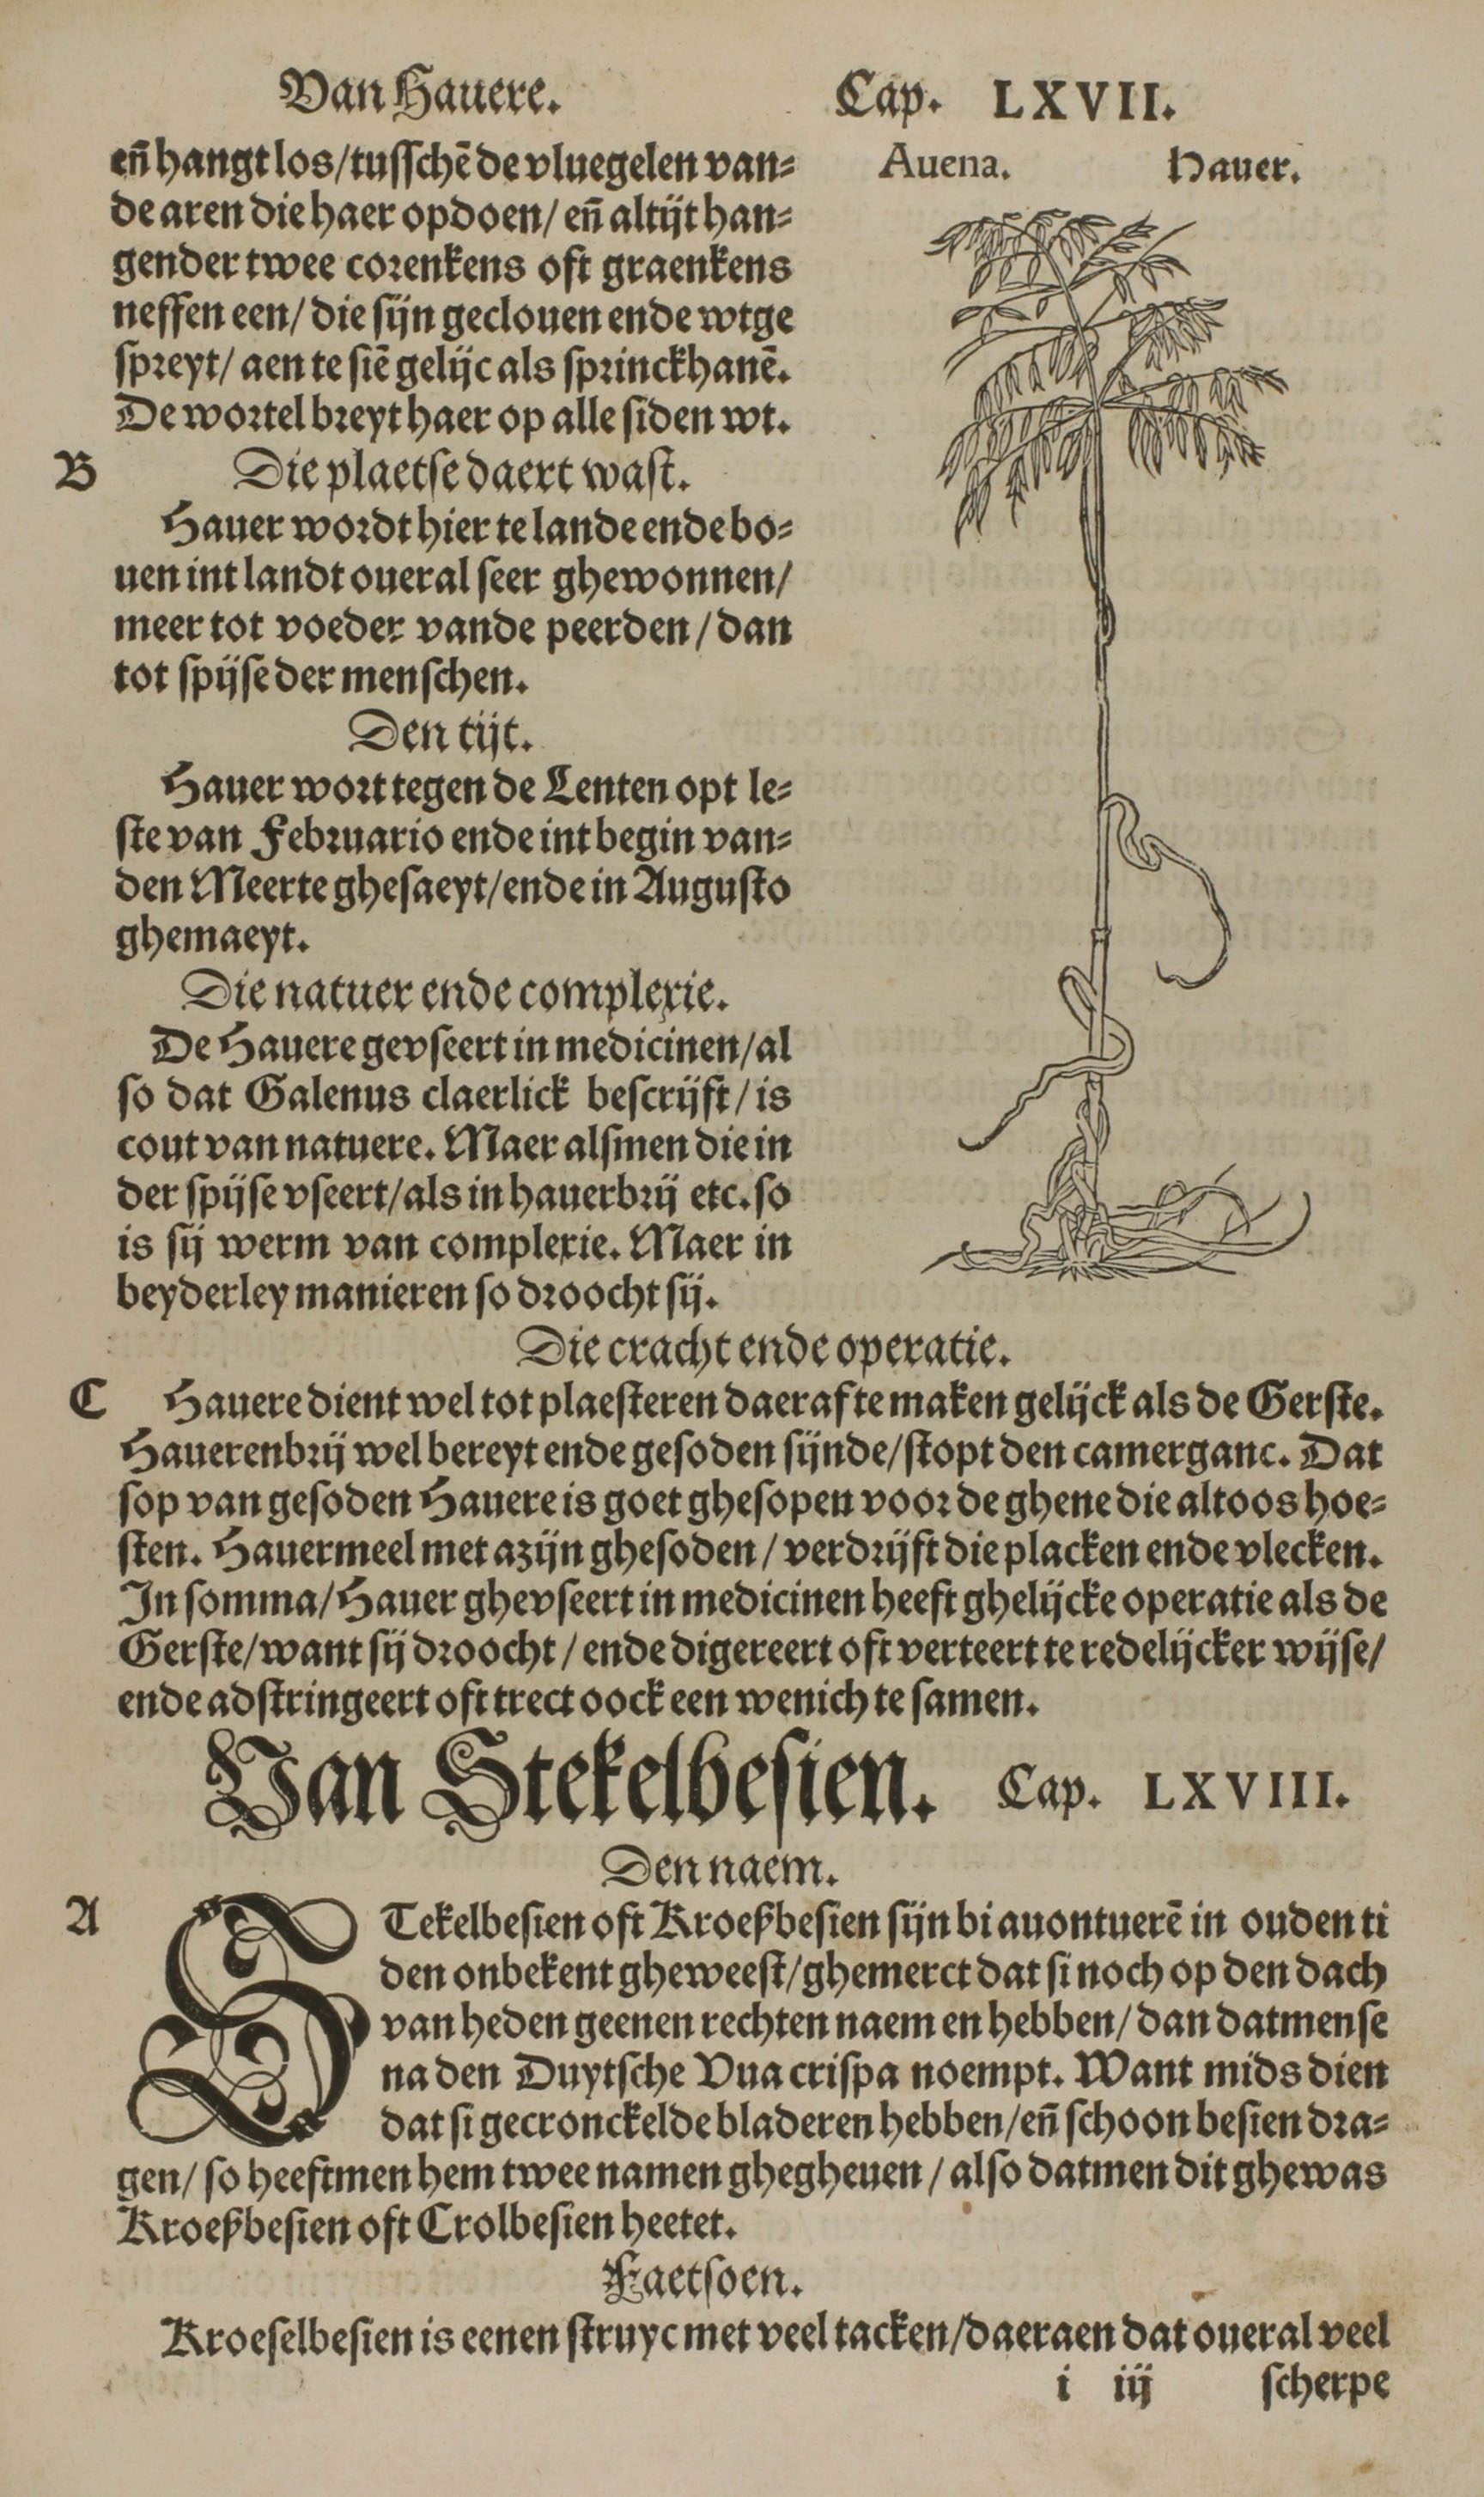 Van Hauere. Cap. LXVII.
en̄ hangt los/tusschē de vluegelen van⸗
de aren die haer opdoen/ en̄ altijt han⸗
gender twee corenkens oft graenkens
neffen een/ die sijn geclouen ende wtge
spreyt/ aen te siē gelijc als sprinckhanē.
De wortel breyt haer op alle siden wt.
B Die plaetse daert wast.
Hauer wordt hier te lande ende bo⸗
uen int landt oueral seer ghewonnen/
meer tot voeder vande peerden/dan
tot spijse der menschen.
Den tijt.
Hauer wort tegen de Lenten opt le⸗
ste van Februario ende int begin van⸗
den Meerte ghesaeyt/ende in Augusto
ghemaeyt.
Die natuer ende complexie.
De Hauere gevseert in medicinen/al
so dat Galenus claerlick bescrijft/is
cout van natuere. Maer alsmen die in
der spijse vseert/als in hauerbrij etc. so
is sij werm van complexie. Maer in
beyderley manieren so droocht sij.
Auena. Hauer.
Die cracht ende operatie.
C Hauere dient wel tot plaesteren daer af te maken gelijck als de Gerste.
Hauerenbrij wel bereyt ende gesoden sijnde/stopt den camerganc. Dat
sop van gesoden Hauere is goet ghesopen voor de ghene die altoos hoe⸗
sten. Hauermeel met azijn ghesoden/verdrijft die placken ende vlecken.
In somma/Hauer ghevseert in medicinen heeft ghelijcke operatie als de
Gerste/want sij droocht/ende digereert oft verteert te redelijcker wijse/
ende adstringeert oft trect oock een wenich te samen.
Van Stekelbesien. Cap. LXVIII.
Den naem.
A STekelbesien oft Kroeßbesien sijn bi auontuerē in ouden ti
den onbekent gheweest/ghemerct dat si noch op den dach
van heden geenen rechten naem en hebben/ dan datmense
na den Duytsche Vua crispa noempt. Want mids dien
dat si gecronckelde bladeren hebben/en̄ schoon besien dra⸗
gen/ so heeftmen hem twee namen ghegheuen/also datmen dit ghewas
Kroeßbesien oft Crolbesien heetet.
Faetsoen.
Kroeselbesien is eenen struyc met veel tacken/daer aen dat oueral veel
i iij scherpe